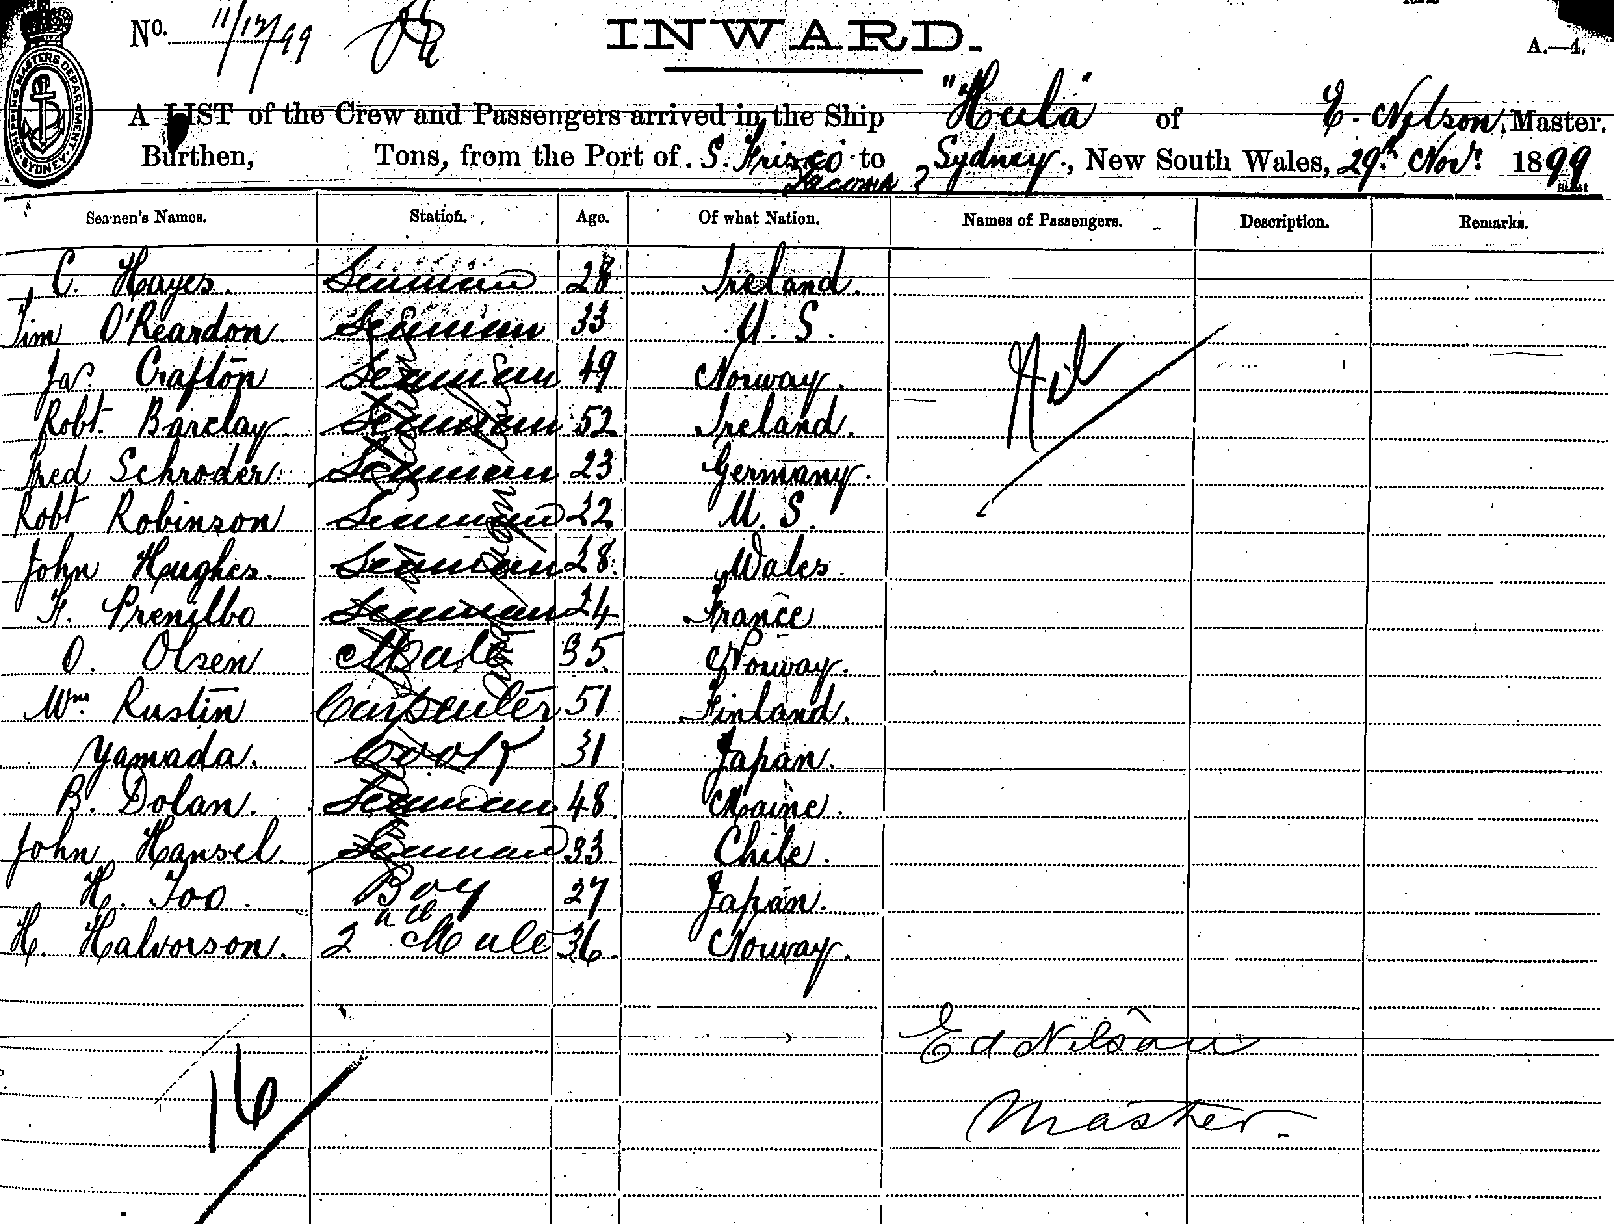 No. 11/12/99
INWARD.
A.—4.
SHIPPING MASTERS DEPARTMENT
A LIST of the Crew and Passengers arrived in the Ship "Hula" of E. Nilson, Master.
Burthen, Tons, from the Port of S. Frisco to Sydney, New South Wales, 29th Novr. 1899
Tacoma ?
Seamen's Names. Station. Age. Of what Nation. Names of Passengers. Description. Remarks.
C. Hayes. Seaman 28 Ireland.
Tim O'Reardon Seaman 33 U. S.
Jas. Crafton Seaman 49 Norway.
Robt. Barclay. Seaman 52 Ireland.
Fred Schroder. Seaman 23 Germany.
Robt Robinson Seaman 22 U. S.
John Hughes. Seaman 28. Wales.
F. Prenilbo Seaman 24 France
O. Olsen Mate 35 Norway.
Wm. Rustin Carpenter 51 Finland.
Yamada. Cook 31 Japan.
B. Dolan. Seaman 48 Maine.
John Hansel. Seaman 33 Chile.
H. Too. Boy 27 Japan.
H. Halvorson. 2nd Mate 36. Norway.
Nil
Ed Nilson
Master.
16